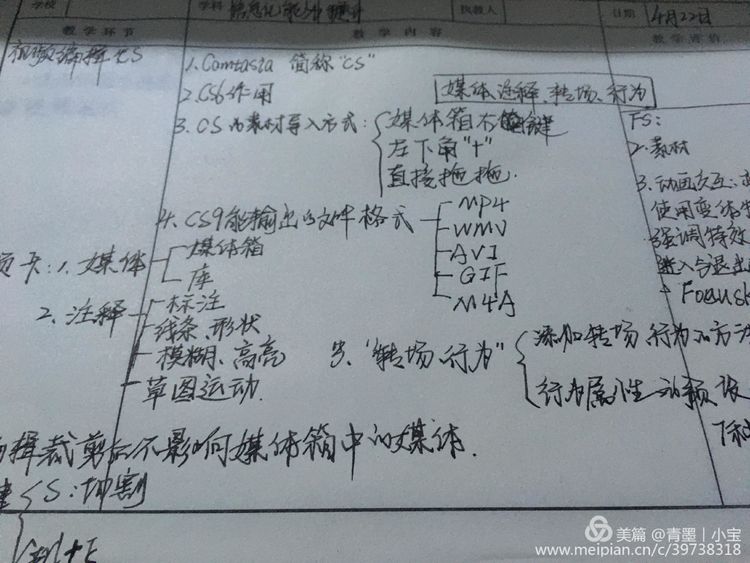 学校 学科 信息化能力提升 执教人 日期 4月22日
教学环节 教学内容 教学评价
初微编辑CS
1. Camtasia 简称"CS"
2. CS6作用
媒体、注释、转场、行为
3. CS的素材导入方式：媒体箱不右键
左下角"+"
直接拖拖.
FS：
2. 素材
3. 动画交互：
使用变体
强调特效
进入与退出
Focusk
4. CS9能输出的文件格式
MP4
WMV
AVI
GIF
M4A
页卡：1. 媒体
媒体箱
库
2. 注释
标注
线条、形状
模糊、高亮
草图运动.
5. "转场、行为"
添加转场、行为的方法
行为属性与预设
辑裁剪后不影响媒体箱中的媒体.
S：切割
美篇 @青墨丨小宝
www.meipian.cn/c/39738318